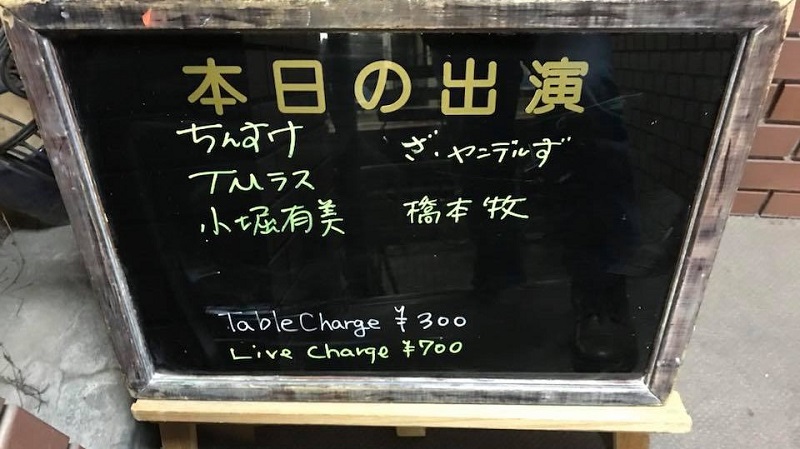 本日の出演
ちんすけ
TMラス
小堀有美
ざ・ヤニデルず
橋本 牧
Table Charge ¥300
Live Charge ¥700